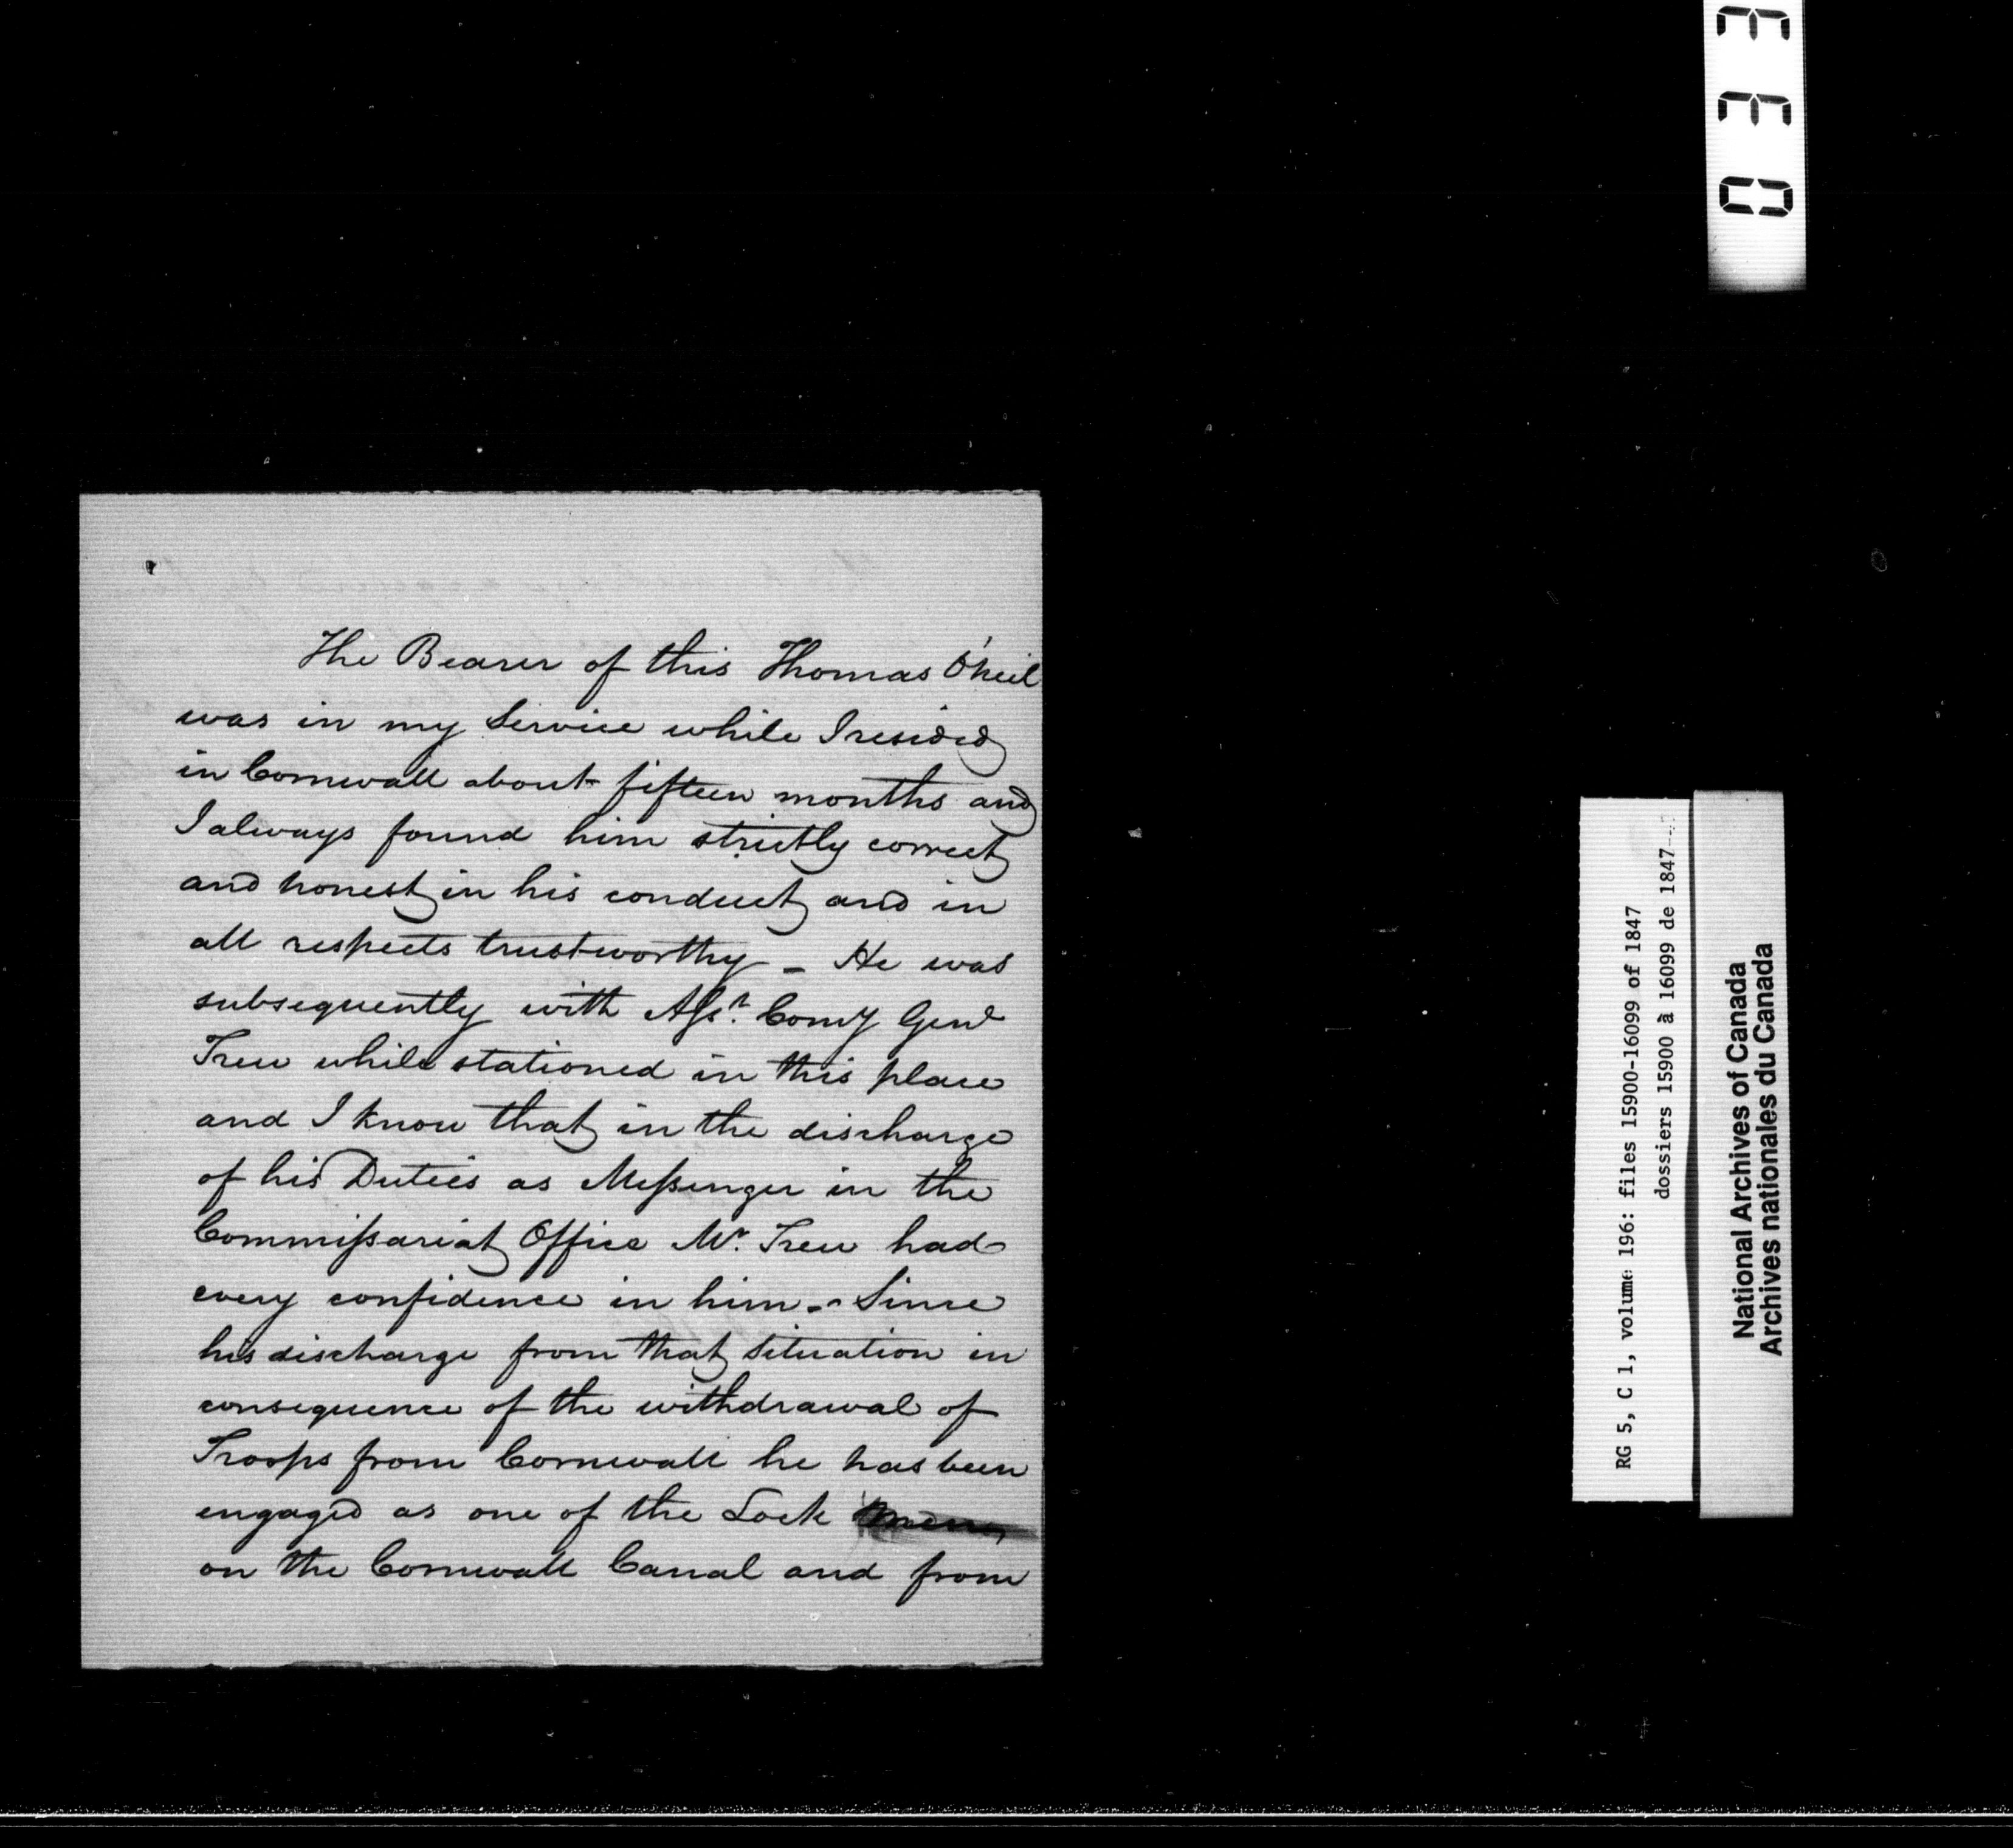 The Bearer of this Thomas O'neil
was in my Service while I resided
in Cornwall about fifteen months and
I always found him strictly correct
and honest in his conduct and in
all respects trustworthy - He was
subsequently with Asst. Comy Genl
Trew while stationed in this place
and I know that in the discharge
of his Duties as Messenger in the
Commissariat Office Mr. Trew had
every confidence in him - Since
his discharge from that Situation in
consequence of the withdrawal of
Troops from Cornwall he has been
engaged as one of the Lock men
on the Cornwall Canal and from
RG 5, C 1, volume 196: files 15900-16099 of 1847
dossiers 15900 à 16099 de 1847
National Archives of Canada
Archives nationales du Canada